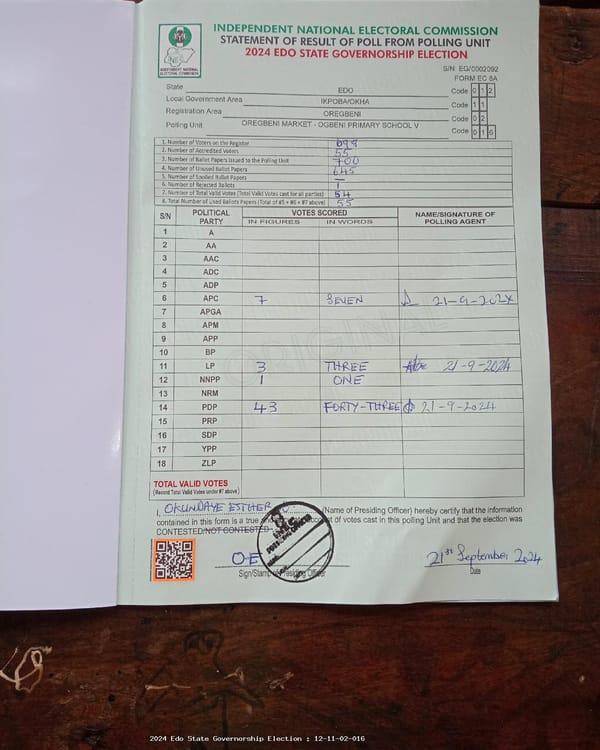 INDEPENDENT NATIONAL ELECTORAL COMMISSION
STATEMENT OF RESULT OF POLL FROM POLLING UNIT
2024 EDO STATE GOVERNORSHIP ELECTION
INEC
INDEPENDENT NATIONAL ELECTORAL COMMISSION
S/N: EG/0002092
FORM EC 8A
State EDO Code 0 1 2
Local Government Area IKPOBA/OKHA Code 1 1
Registration Area OREGBENI Code 0 2
Polling Unit OREGBENI MARKET - OGBENI PRIMARY SCHOOL V Code 0 1 6
1. Number of Voters on the Register 698
2. Number of Accredited Voters 55
3. Number of Ballot Papers Issued to the Polling Unit 700
4. Number of Unused Ballot Papers 645
5. Number of Spoiled Ballot Papers —
6. Number of Rejected Ballots 1
7. Number of Total Valid Votes (Total Valid Votes cast for all parties) 54
8. Total Number of Used Ballots Papers (Total of #5 + #6 + #7 above) 55
S/N POLITICAL PARTY VOTES SCORED NAME/SIGNATURE OF POLLING AGENT
IN FIGURES IN WORDS
1 A
2 AA
3 AAC
4 ADC
5 ADP
6 APC 7 SEVEN 21-9-202
7 APGA
8 APM
9 APP
10 BP
11 LP 3 THREE 21-9-2024
12 NNPP 1 ONE
13 NRM
14 PDP 43 FORTY-THREE 21-9-2024
15 PRP
16 SDP
17 YPP
18 ZLP
ORIGINAL
TOTAL VALID VOTES
(Record Total Valid Votes under #7 above)
I, OKUNDAYE ESTHER O. (Name of Presiding Officer) hereby certify that the information
contained in this form is a true and of votes cast in this polling Unit and that the election was
CONTESTED/NOT CONTESTED
INEC
PRESIDING OFFICER
OE 21st September 2024
Sign/Stamp of Presiding Officer Date
2024 Edo State Governorship Election : 12-11-02-016